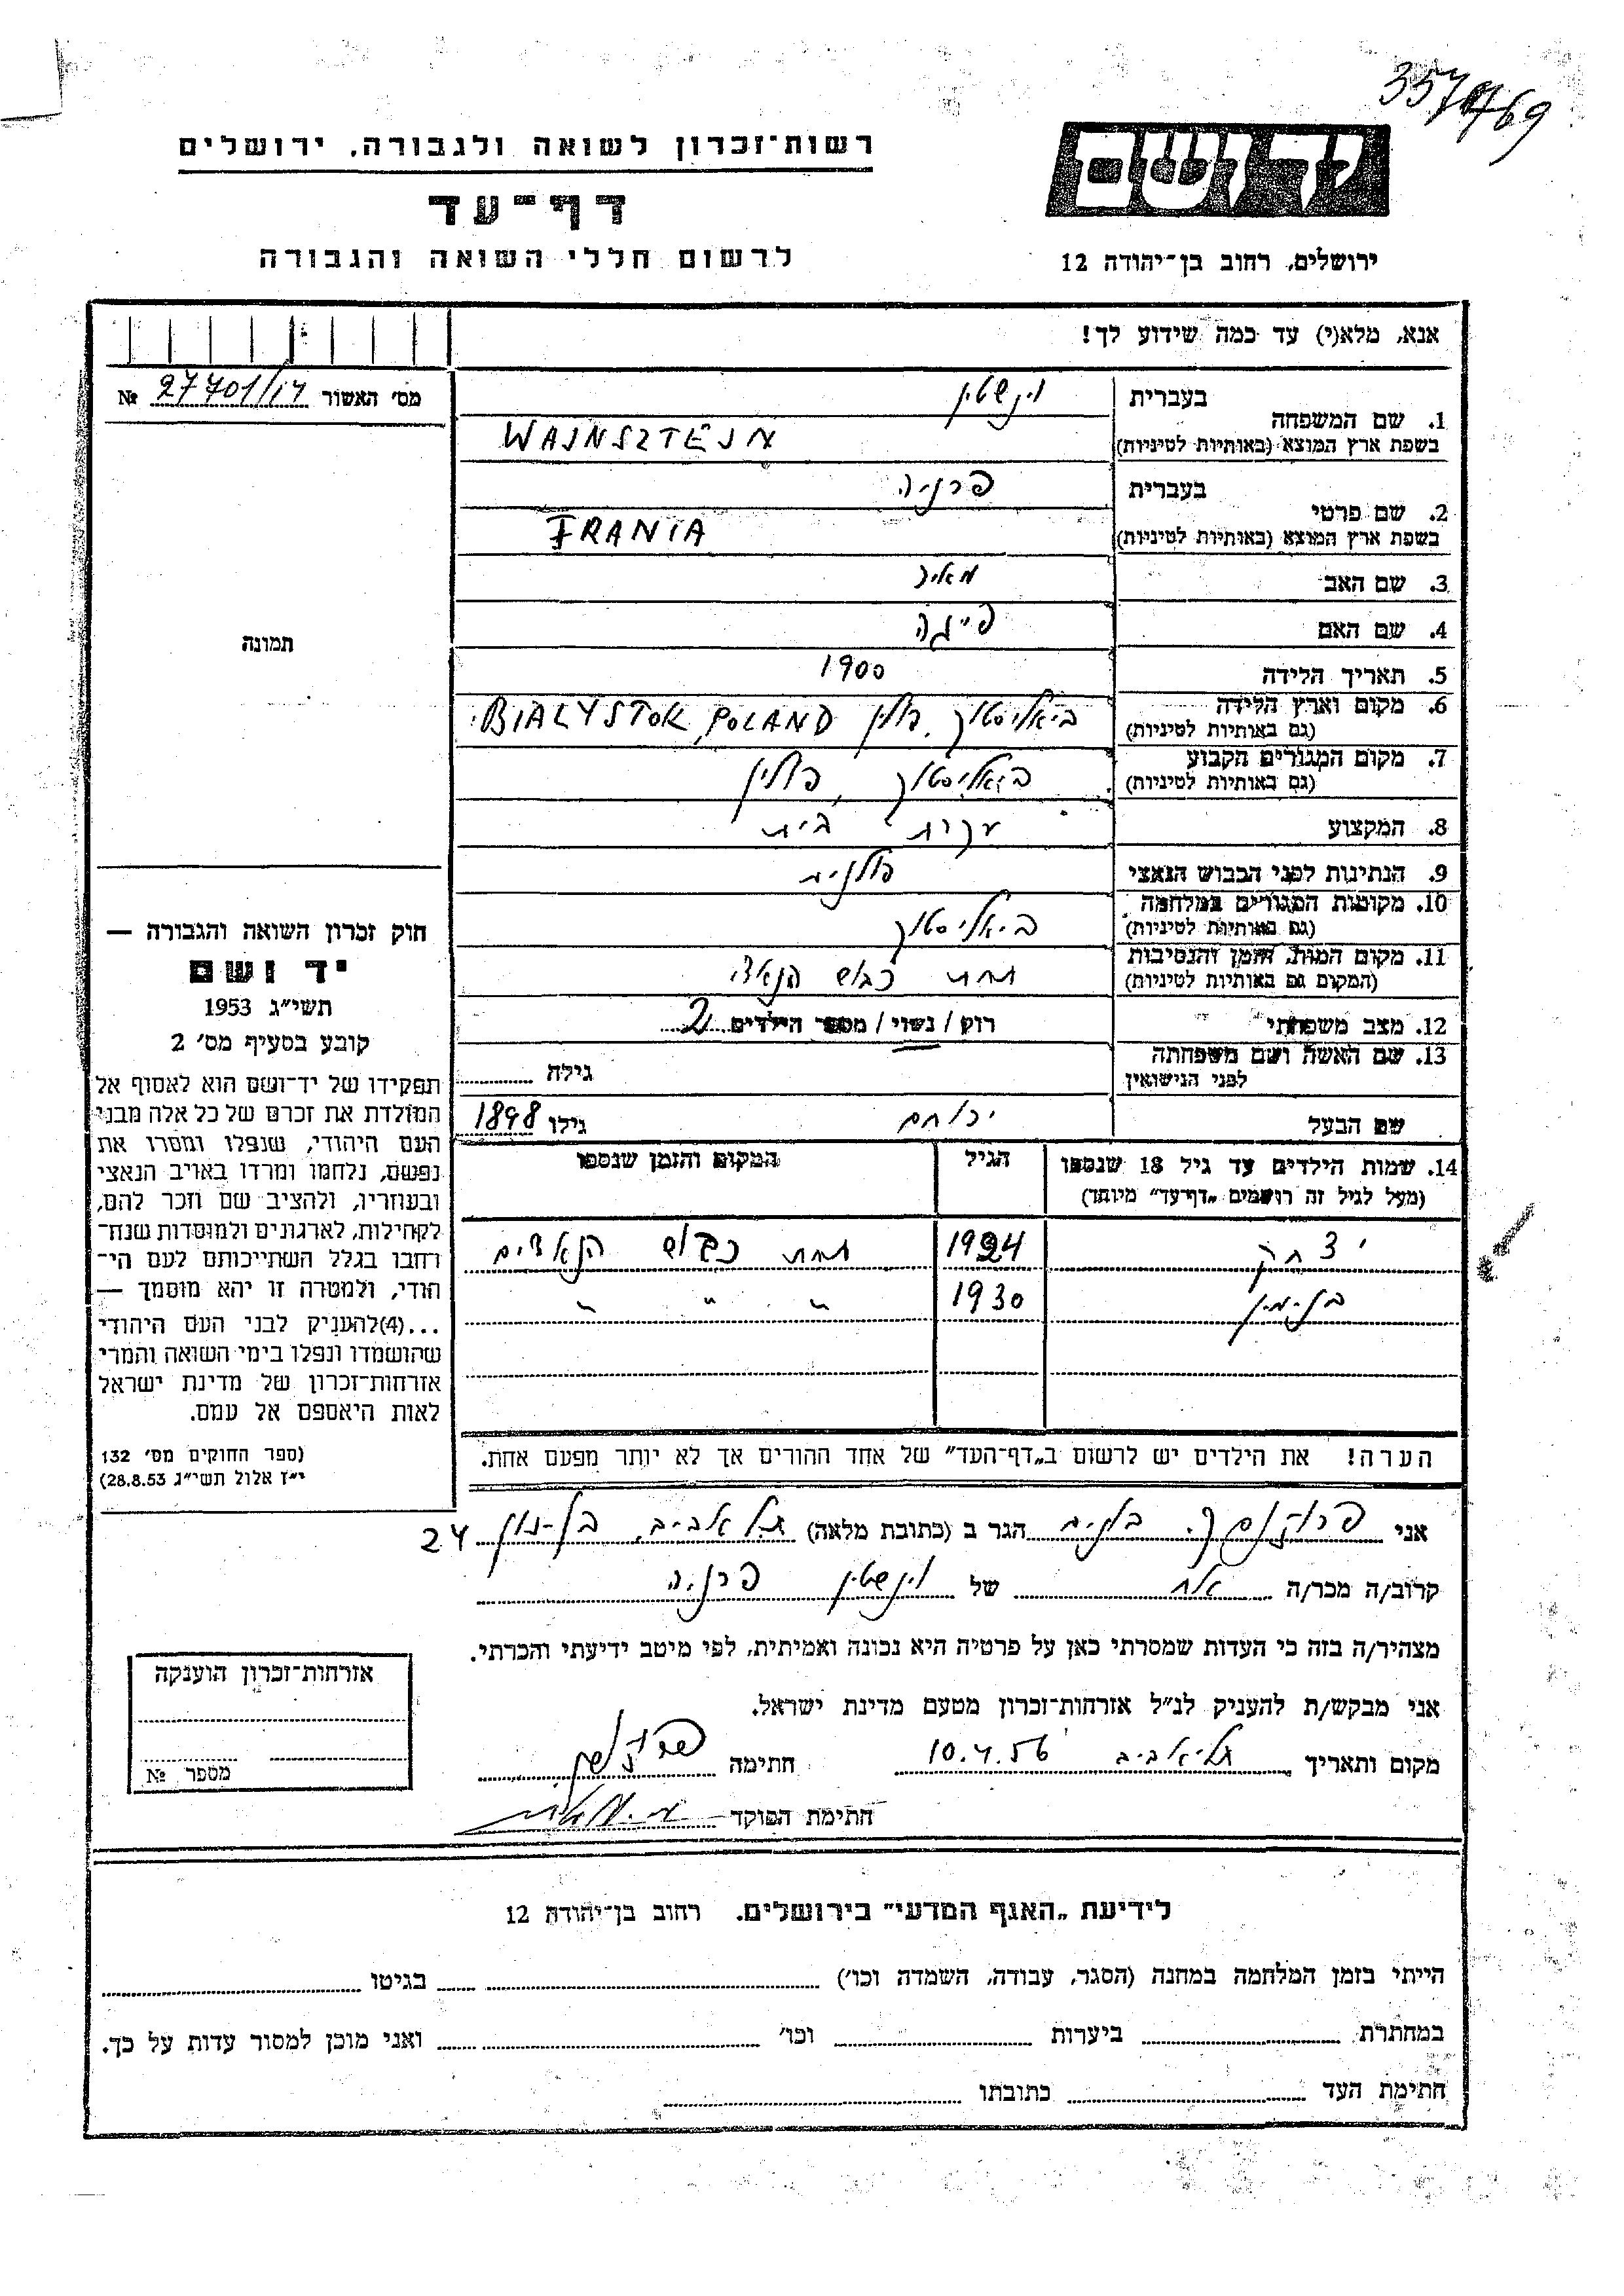 357769
רשות־זכרון לשואה ולגבורה, ירושלים
יד ושם
דף־עד
לרשום חללי השואה והגבורה
ירושלים, רחוב בן־יהודה 12
אנא, מלא(י) עד כמה שידוע לך!
מס׳ האשור 27701/17 №
1. שם המשפחה
בעברית וינשטין
בשפת ארץ המוצא (באותיות לטיניות) WAJNSZTEJN
2. שם פרטי
בעברית פרניה
בשפת ארץ המוצא (באותיות לטיניות) FRANIA
3. שם האב מאיר
4. שם האם פייגה
5. תאריך הלידה 1900
6. מקום וארץ הלידה ביאליסטוק, פולין BIALYSTOK, POLAND
(גם באותיות לטיניות)
7. מקום המגורים הקבוע ביאליסטוק, פולין
(גם באותיות לטיניות)
8. המקצוע עקרת בית
9. הנתינות לפני הכבוש הנאצי פולנית
10. מקומות המגורים במלחמה ביאליסטוק
(גם באותיות לטיניות)
11. מקום המות, הזמן והנסיבות תחת כבוש הנאצי
(המקום גם באותיות לטיניות)
12. מצב משפחתי רווק / נשוי / מספר הילדים 2
13. שם האשה ושם משפחתה גילה
לפני הנישואין
שם הבעל ירוחם גילו 1898
14. שמות הילדים עד גיל 18 שנספו הגיל המקום והזמן שנספו
(מעל לגיל זה רושמים „דף־עד״ מיוחד)
יצחק 1924 תחת כבוש הנאצים
בנימין 1930 " " "
הערה! את הילדים יש לרשום ב„דף־העד״ של אחד ההורים אך לא יותר מפעם אחת.
תמונה
חוק זכרון השואה והגבורה —
יד ושם
תשי״ג 1953
קובע בסעיף מס׳ 2
תפקידו של יד־ושם הוא לאסוף אל
המולדת את זכרם של כל אלה מבני
העם היהודי, שנפלו ומסרו את
נפשם, נלחמו ומרדו באויב הנאצי
ובעוזריו, ולהציב שם וזכר להם,
לקהילות, לארגונים ולמוסדות שנח־
רחבו בגלל השתייכותם לעם הי־
הודי, ולמטרה זו יהא מוסמך —
...(4)להעניק לבני העם היהודי
שהושמדו ונפלו בימי השואה והמרי
אזרחות־זכרון של מדינת ישראל
לאות היאספם אל עמם.
(ספר החוקים מס׳ 132
י״ז אלול תשי״ג 28.8.53)
אני הגר ב (כתובת מלאה) תל אביב, בן־נון 24
קרוב/ה מכר/ה אח של וינשטין פרניה
מצהיר/ה בזה כי העדות שמסרתי כאן על פרטיה היא נכונה ואמיתית, לפי מיטב ידיעתי והכרתי.
אני מבקש/ת להעניק לנ״ל אזרחות־זכרון מטעם מדינת ישראל.
מקום ותאריך תל־אביב 10.4.56 חתימה
חתימת הפוקד
אזרחות־זכרון הוענקה
מספר №
לידיעת „האגף המדעי״ בירושלים, רחוב בן־יהודה 12
הייתי בזמן המלחמה במחנה (הסגר, עבודה, השמדה וכו׳) בגיטו
במחתרת ביערות וכו׳ ואני מוכן למסור עדות על כך.
חתימת העד כתובתו